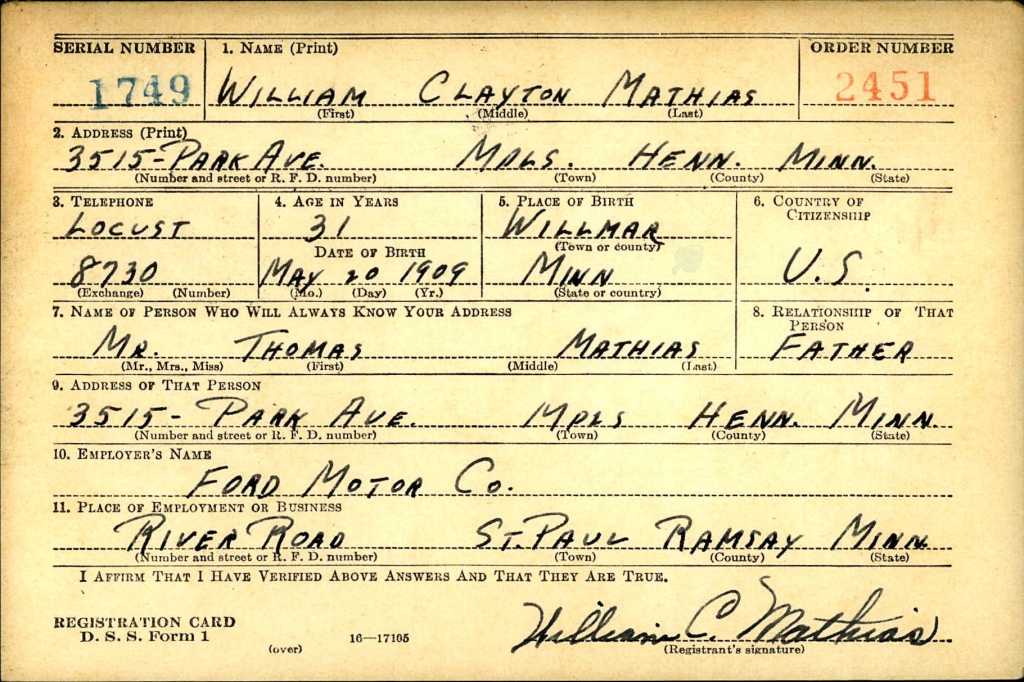 SERIAL NUMBER 1. NAME (Print) ORDER NUMBER
1749 WILLIAM CLAYTON MATHIAS 2451
(First) (Middle) (Last)
2. ADDRESS (Print)
3515-PARK AVE. MPLS. HENN. MINN.
(Number and street or R. F. D. number) (Town) (County) (State)
3. TELEPHONE 4. AGE IN YEARS 5. PLACE OF BIRTH 6. COUNTRY OF CITIZENSHIP
LOCUST 31 WILLMAR
DATE OF BIRTH (Town or county)
8730 MAY 20 1909 MINN U.S.
(Exchange) (Number) (Mo.) (Day) (Yr.) (State or country)
7. NAME OF PERSON WHO WILL ALWAYS KNOW YOUR ADDRESS 8. RELATIONSHIP OF THAT PERSON
MR. THOMAS MATHIAS FATHER
(Mr., Mrs., Miss) (First) (Middle) (Last)
9. ADDRESS OF THAT PERSON
3515- PARK AVE. MPLS HENN. MINN.
(Number and street or R. F. D. number) (Town) (County) (State)
10. EMPLOYER'S NAME
FORD MOTOR CO.
11. PLACE OF EMPLOYMENT OR BUSINESS
RIVER ROAD ST. PAUL RAMSAY MINN.
(Number and street or R. F. D. number) (Town) (County) (State)
I AFFIRM THAT I HAVE VERIFIED ABOVE ANSWERS AND THAT THEY ARE TRUE.
REGISTRATION CARD
D. S. S. Form 1 16—17105 William C. Mathias
(over) (Registrant's signature)